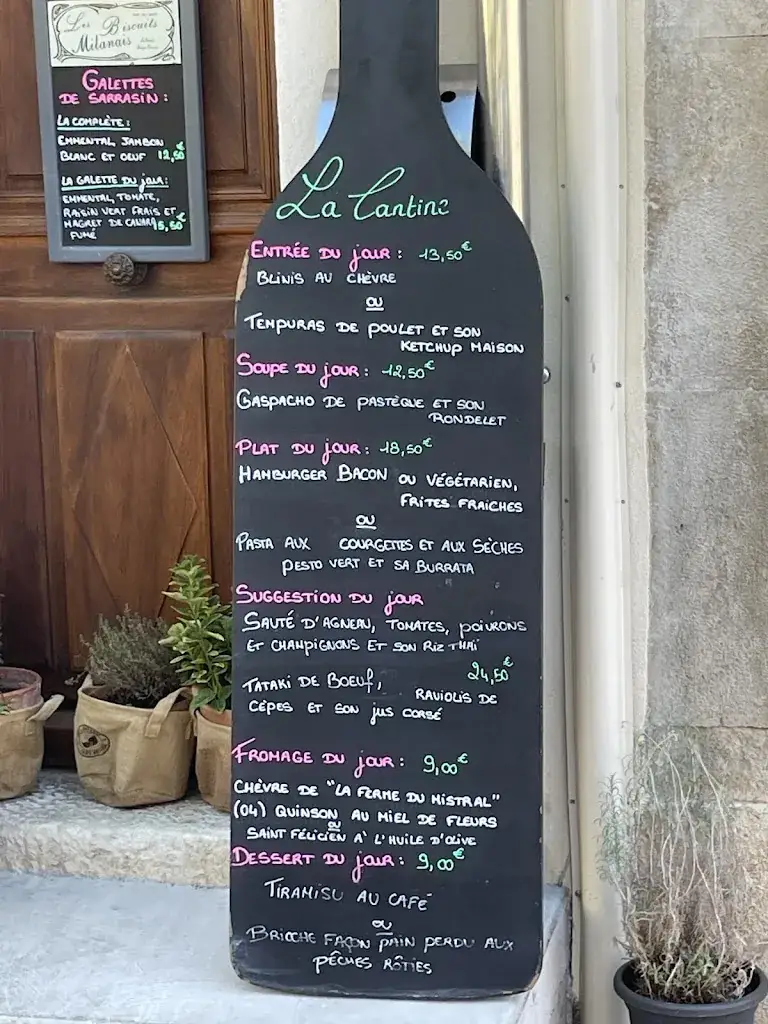 Les Biscuits
Milanais
GALETTES
DE SARRASIN :
LA COMPLÈTE :
EMMENTAL, JAMBON
BLANC ET OEUF 12,50€
LA GALETTE DU JOUR :
EMMENTAL, TOMATE,
RAISIN VERT FRAIS ET
MAGRET DE CANARD 15,50€
FUMÉ
La Cantine
ENTRÉE DU JOUR : 13,50€
BLINIS AU CHÈVRE
OU
TEMPURAS DE POULET ET SON
KETCHUP MAISON
SOUPE DU JOUR : 12,50€
GASPACHO DE PASTÈQUE ET SON
RONDELET
PLAT DU JOUR : 18,50€
HAMBURGER BACON OU VÉGÉTARIEN,
FRITES FRAICHES
OU
PASTA AUX COURGETTES ET AUX SÈCHES
PESTO VERT ET SA BURRATA
SUGGESTION DU JOUR
SAUTÉ D'AGNEAU, TOMATES, POIVRONS
ET CHAMPIGNONS ET SON RIZ THAÏ
24,50€
TATAKI DE BOEUF, RAVIOLIS DE
CÈPES ET SON JUS CORSÉ
FROMAGE DU JOUR : 9,00€
CHÈVRE DE "LA FERME DU MISTRAL"
(04) QUINSON AU MIEL DE FLEURS
OU
SAINT FÉLICIEN À L'HUILE D'OLIVE
DESSERT DU JOUR : 9,00€
TIRAMISU AU CAFÉ
OU
BRIOCHE FAÇON PAIN PERDU AUX
PÊCHES RÔTIES